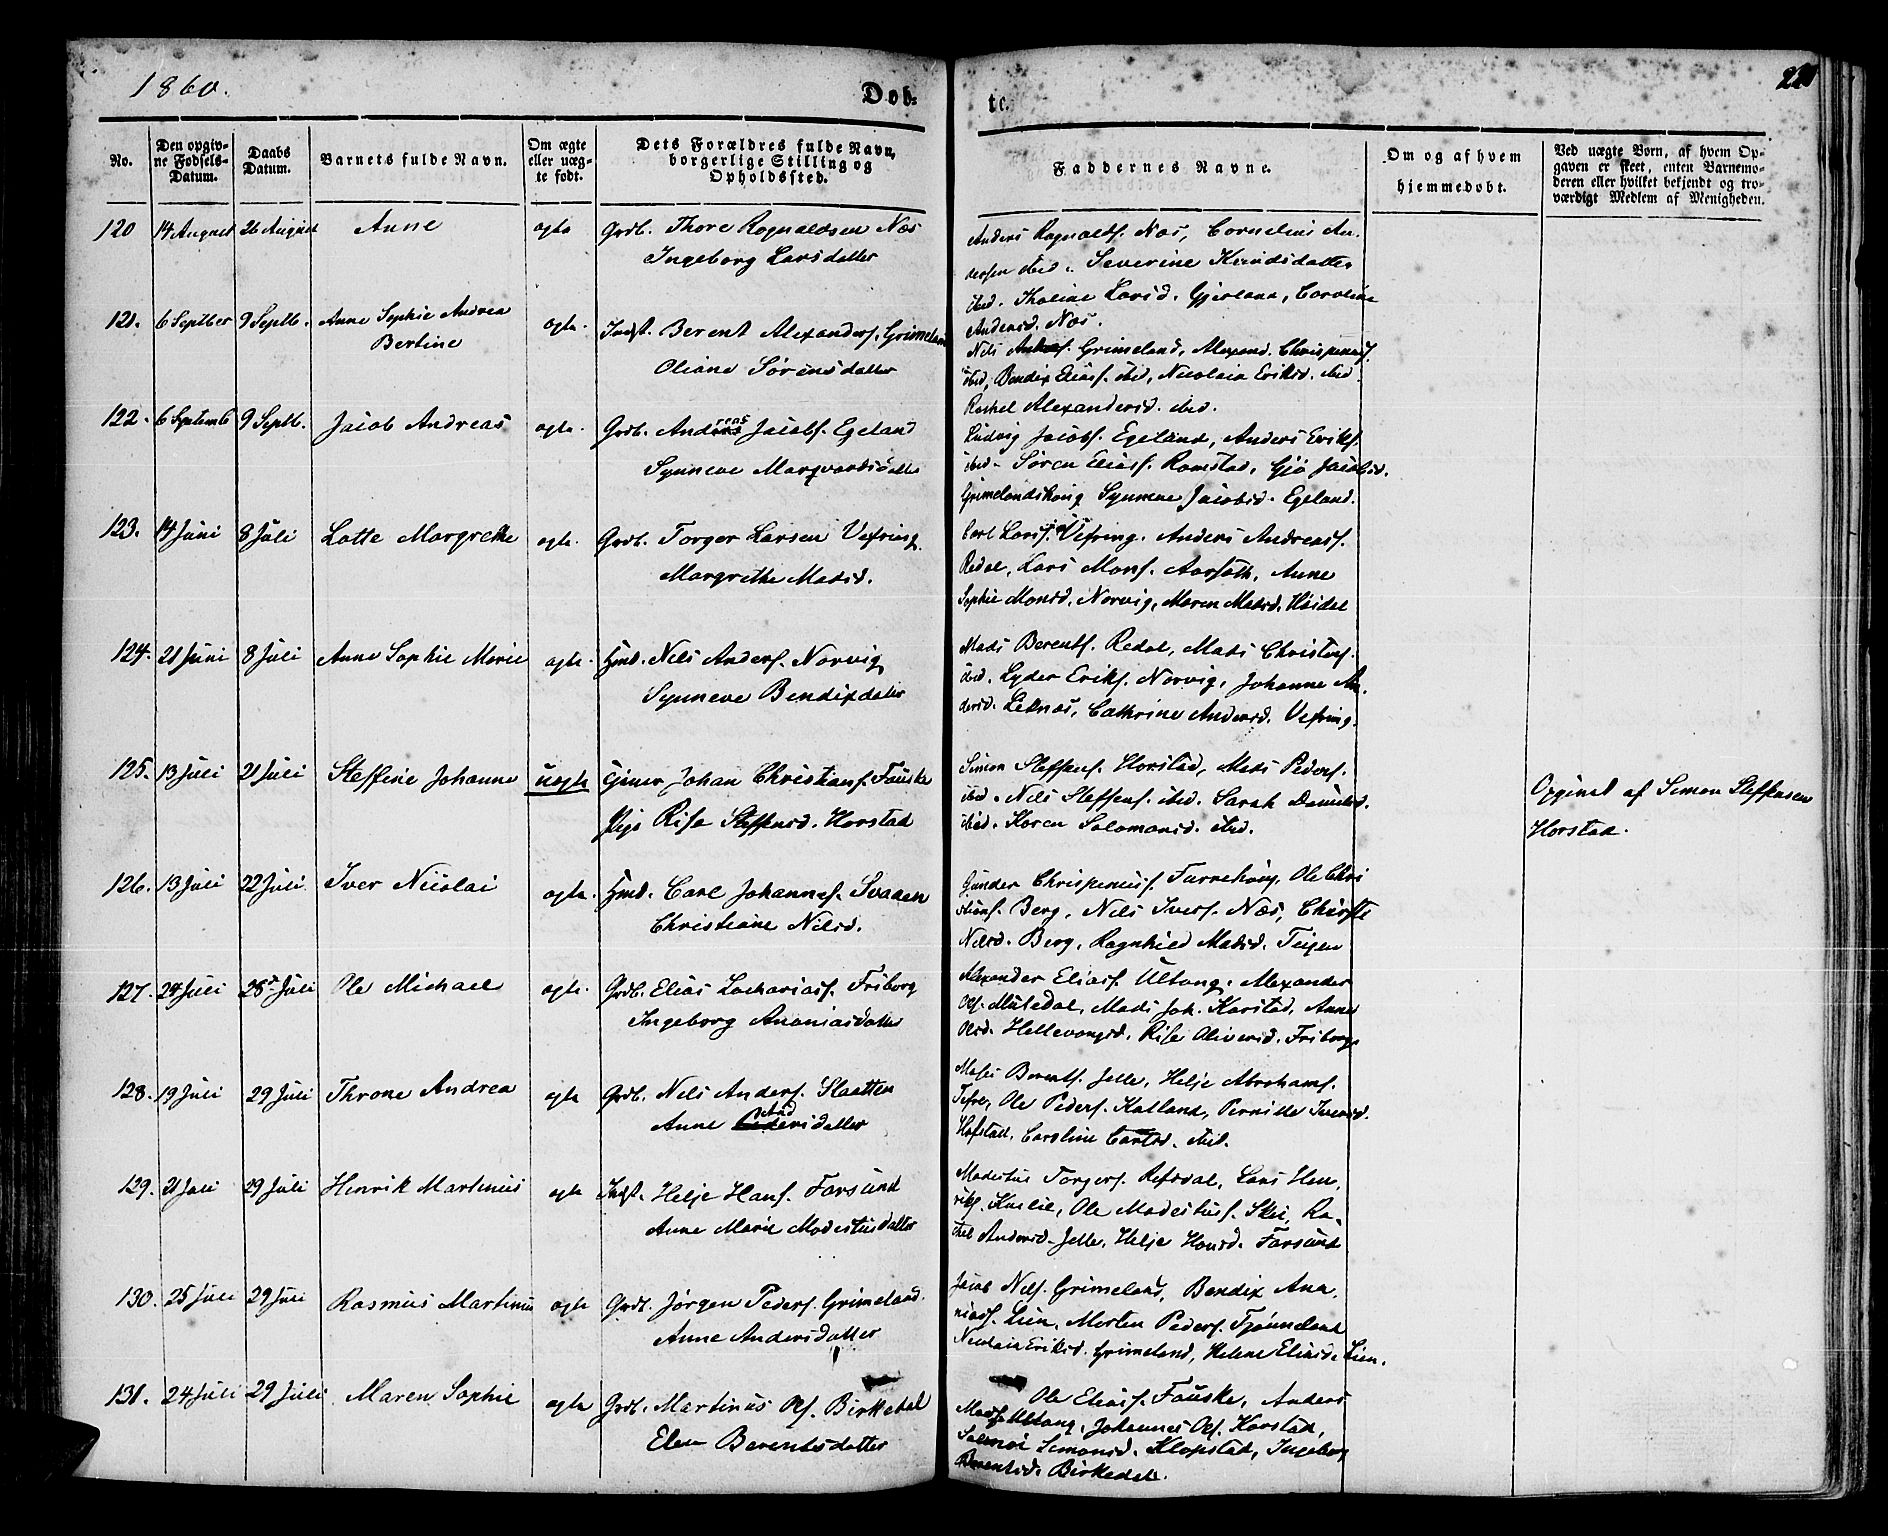 1860.
Døb-
te.
No.
Den opgiv-
ne Fødsels-
Datum.
Daabs
Datum.
Barnets fulde Navn.
Om ægte
eller uæg-
te født.
Dets Forældres fulde Navn,
borgerlige Stilling og
Opholdssted.
Faddernes Navne.
Om og af hvem
hjemmedøbt.
Ved uægte Børn, af hvem Op-
gaven er skeet, enten Barnemo-
deren eller hvilket bekjendt og tro-
værdigt Medlem af Menigheden.
120 14 August 26 August Anne ægte Grdb. Thore Ragnaldsen Næs
Ingeborg Larsdatter
Anders Ragnalds. Næs, Cornelius An-
dersen ibid. Severine Knudsdatter
ibid. Thaline Larsd. Gjerland, Caroline
Andersd. Næs.
121. 6 Septber 9 Septb. Anne Sophie Andrea
Bertine
ægte Indst. Berent Alexanders. Grimeland
Oliane Sørensdatter
Nils Grimeland, Alexand. Chrispinus.
ibid, Bendix Elias. ibid, Nicolaia Eriksd. ibid.
Rachel Alexandersd. ibid.
122. 6 Septemb 9 Septb. Jacob Andreas ægte. Grdb. Andreas Jacobs. Egeland
Synneve Marqvardsdatter
Ludvig Jacobs. Egeland, Anders Eriks.
ibid. Søren Elias. Ramstad, Gjø Jacobsd.
Grimelandshoug Synneve Jacobsd. Egeland.
123. 14 Juni 8 Juli Lotte Margrethe ægte. Grdb. Torger Larsen Vefring
Margrethe Madsd.
Carl Lars. Vefring. Anders Andreas.
Redal, Lars Mons. Aarsæth, Anne
Sophie Monsd. Norvig, Maren Madsd. Heidal
124. 21 Juni 8 Juli Anne Sophie Marie ægte. Hmd. Nils Anders. Norvig
Synneve Bendixdatter
Mads Berents. Redal, Mads Christens.
ibid. Lyder Eriks. Norvig, Johanne An-
dersd. Leknæs, Cathrine Andersd. Vefring.
125. 13 Juli 21 Juli Steffine Johanne uægte Johan Christians. Fauske
Pige Rise Steffensd. Horstad
Simon Steffens. Horstad, Mads Peders.
ibid. Nils Steffens. ibid. Sarah Danielsd.
ibid. Karen Salamonsd. ibid.
Opgivet af Simon Steffensen
Horstad.
126. 13 Juli 22 Juli. Iver Nicolai ægte. Hmd. Carl Johannes. Svaaen
Christiane Nilsd.
Gunder Chrispinus. Farrehoug, Ole Chri
stians. Berg, Nils Ivers. Næs, Christi
Nilsd. Berg, Ragnhild Madsd. Teigen
127. 24 Juli 28 Juli Ole Michael ægte. Grdb. Elias Zacharias. Friborg
Ingeborg Ananiasdatter
Alexander Elias. Ultang, Alexander
Ols. Muledal, Mads Joh. Karstad, Anne
Olsd. Hellevangsd. Rise Oliversd. Friborg
128. 19 Juli 29 Juli Throne Andrea ægte Grdb. Nils Anders. Slaatten
Anne Andersdatter
Moses Berents. Jelle, Helje Abrahams.
Tefre, Ole Peders. Kalland, Pernille Iversd.
Hafstad, Caroline Carlsd. ibid.
129. 21 Juli 29 Juli Henrik Martinus ægte Indst. Helje Hans. Farsund
Anne Marie Modestusdatter
Modestus Torgers. Refsdal, Lars Hen-
riks. Kuslie, Ole Modestus. Skei, Ra-
chel Andersd. Jelle, Helje Hansd. Farsund
130. 25 Juli 29 Juli Rasmus Martinus ægte Grdb. Jørgen Peders. Grimeland.
Anne Andersdatter
Jacob Nils. Grimeland, Bendix Ana-
nias. Lien, Morten Peders. Tjønneland
Nicolaia Eriksd. Grimeland, Helene Eliasd. Lien.
131. 24 Juli 29 Juli Maren Sophie ægte Grdb. Martinus Ols. Birkedal
Elen Berentsdatter
Ole Elias. Fauske, Anders
Mads. Ultang, Johannes Ols. Karstad,
Simonsd. Klopstad, Ingeborg
Berentsd. Birkedal.